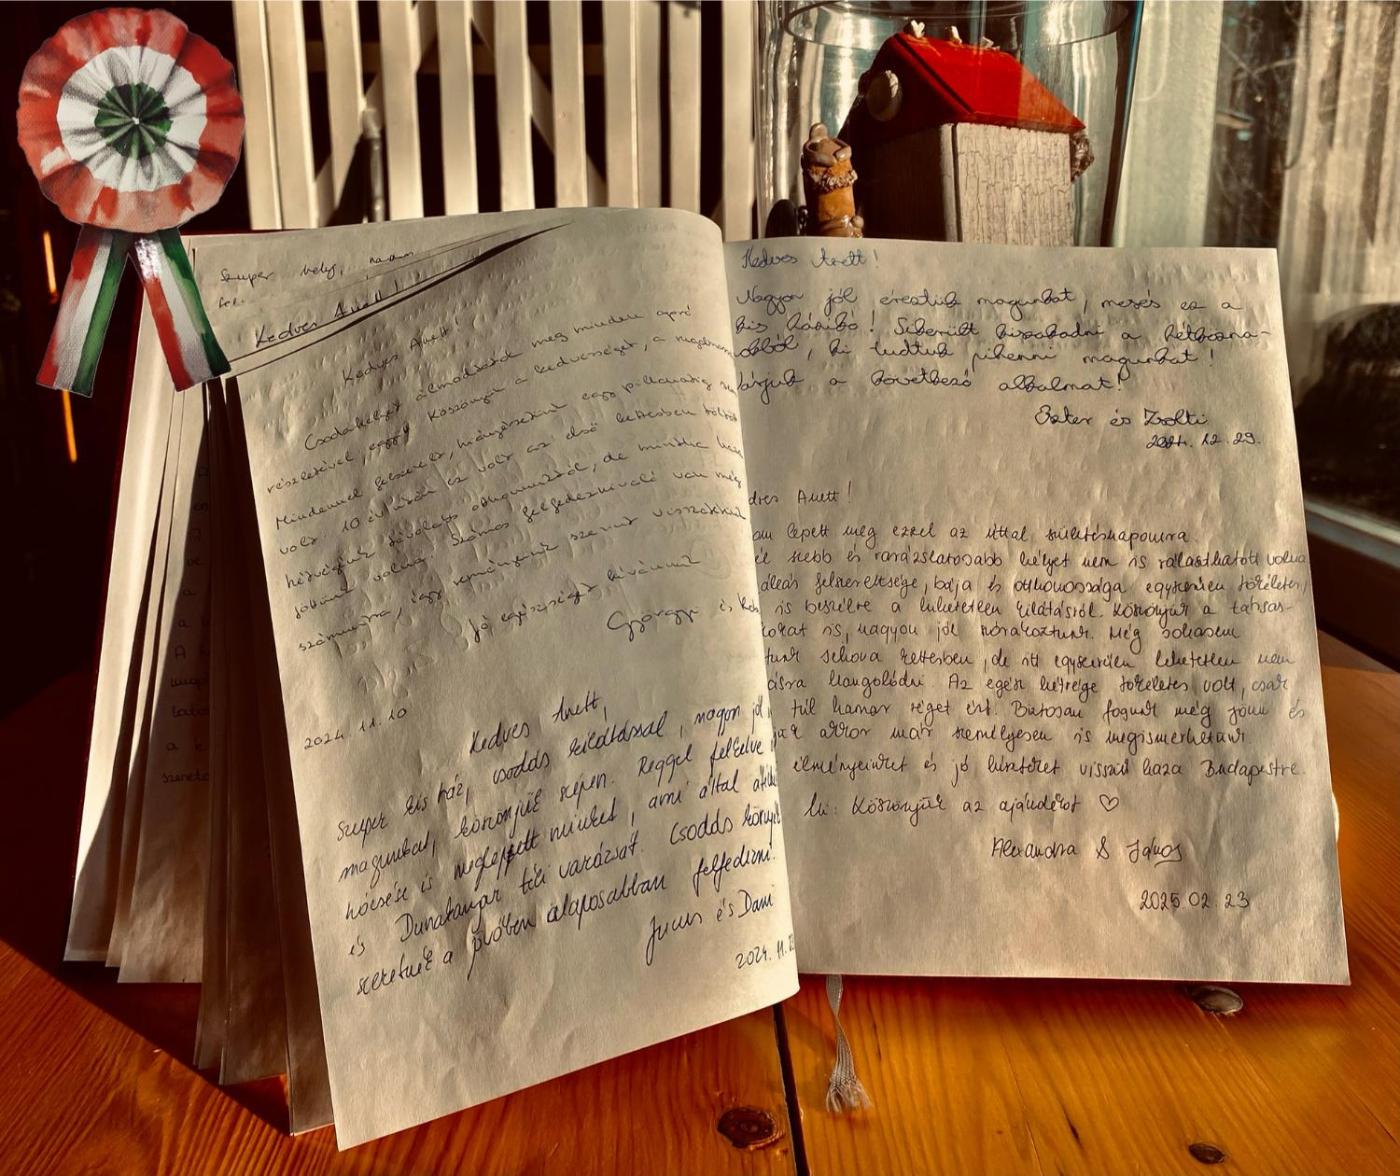 Szuper hely,
Kedves Anett!
Kedves Anett!
Csodahelyet álmodtatok meg minden apró
részletével, együtt. Köszönjük a kedvességet, a
Mindennel felszerelt, hiányérzetünk egy pillanatig sem
volt. 10 év után ez volt az első kettesben töltött
hétvégénk távol otthonunktól, de mintha haza
jöttünk volna. Számos felfedeznivaló van még
számunkra, így reményeink szerint visszatérünk
Jó egészséget kívánunk
Györgyi és
2024. 11. 10
Kedves Anett,
Szuper kis ház, csodás kilátással, nagyon jól
magunkat, köszönjük szépen. Reggel felkelve
hóesés is meglepett minket, ami által
és Dunakanyar téli varázsát. Csodás környék
szeretnék a jövőben alaposabban felfedezni.
Jucus és Dani
2024. 11.
Kedves Anett!
Nagyon jól éreztük magunkat, mesés ez a
kis házikó! Sikerült kiszakadni a hétközna-
okból, ki tudtuk pihenni magunkat!
Várjuk a következő alkalmat!
Eszter és Zsolti
2024. 12. 29.
Anett!
lepett meg ezzel az úttal születésnapomra.
szebb és varázslatosabb helyet nem is választhatott volna
felszereltsége, bája és otthonossága egyszerűen tökéletes,
is beszélve a lehetetlen kilátásról. Köszönjük a társas-
is, nagyon jól szórakoztunk. Még sohasem
sehova kettesben, de itt egyszerűen lehetetlen nem
hangolódni. Az egész hétvége tökéletes volt, csak
túl hamar véget ért. Biztosan fogunk még jönni és
akkor már személyesen is megismerhetünk
élményeinket és jó hírteket visszük haza Budapestre.
Ui: Köszönjük az ajándékot ♡
Alexandra & János
2025. 02. 23